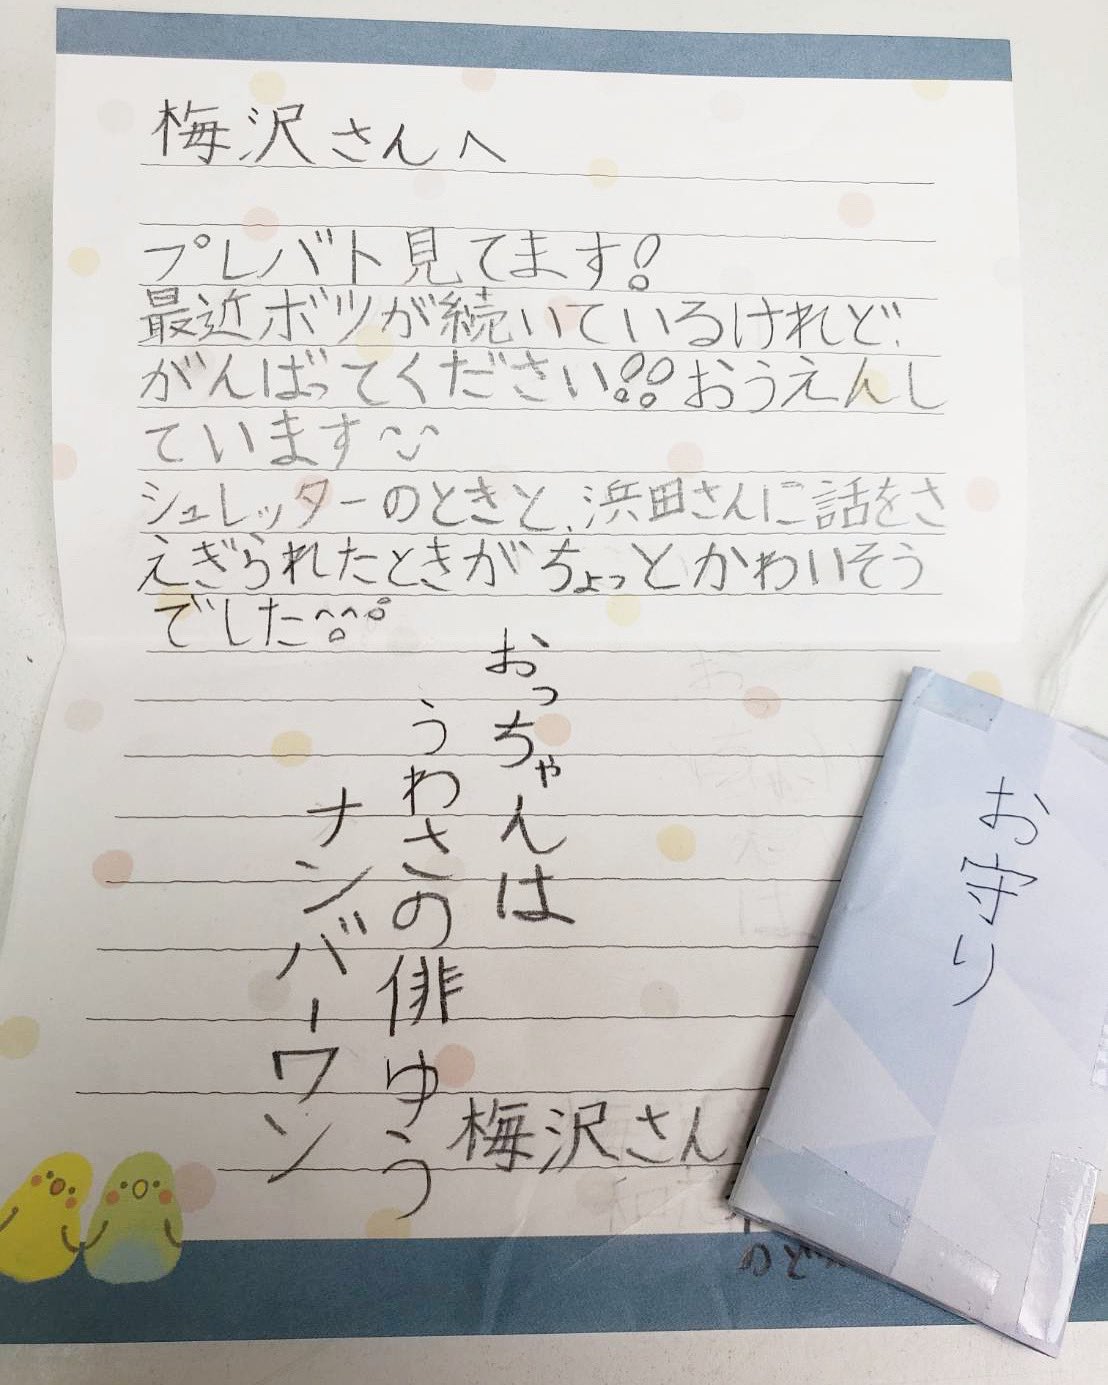 梅沢さんへ
プレバト見てます!
最近ボツが続いているけれど、
がんばってください!!おうえんし
ています
シュレッターのときと、浜田さんに話をさ
えぎられたときがちょっとかわいそう
でした
おっちゃんは
うわさの俳ゆう
ナンバーワン
梅沢さん
お守り